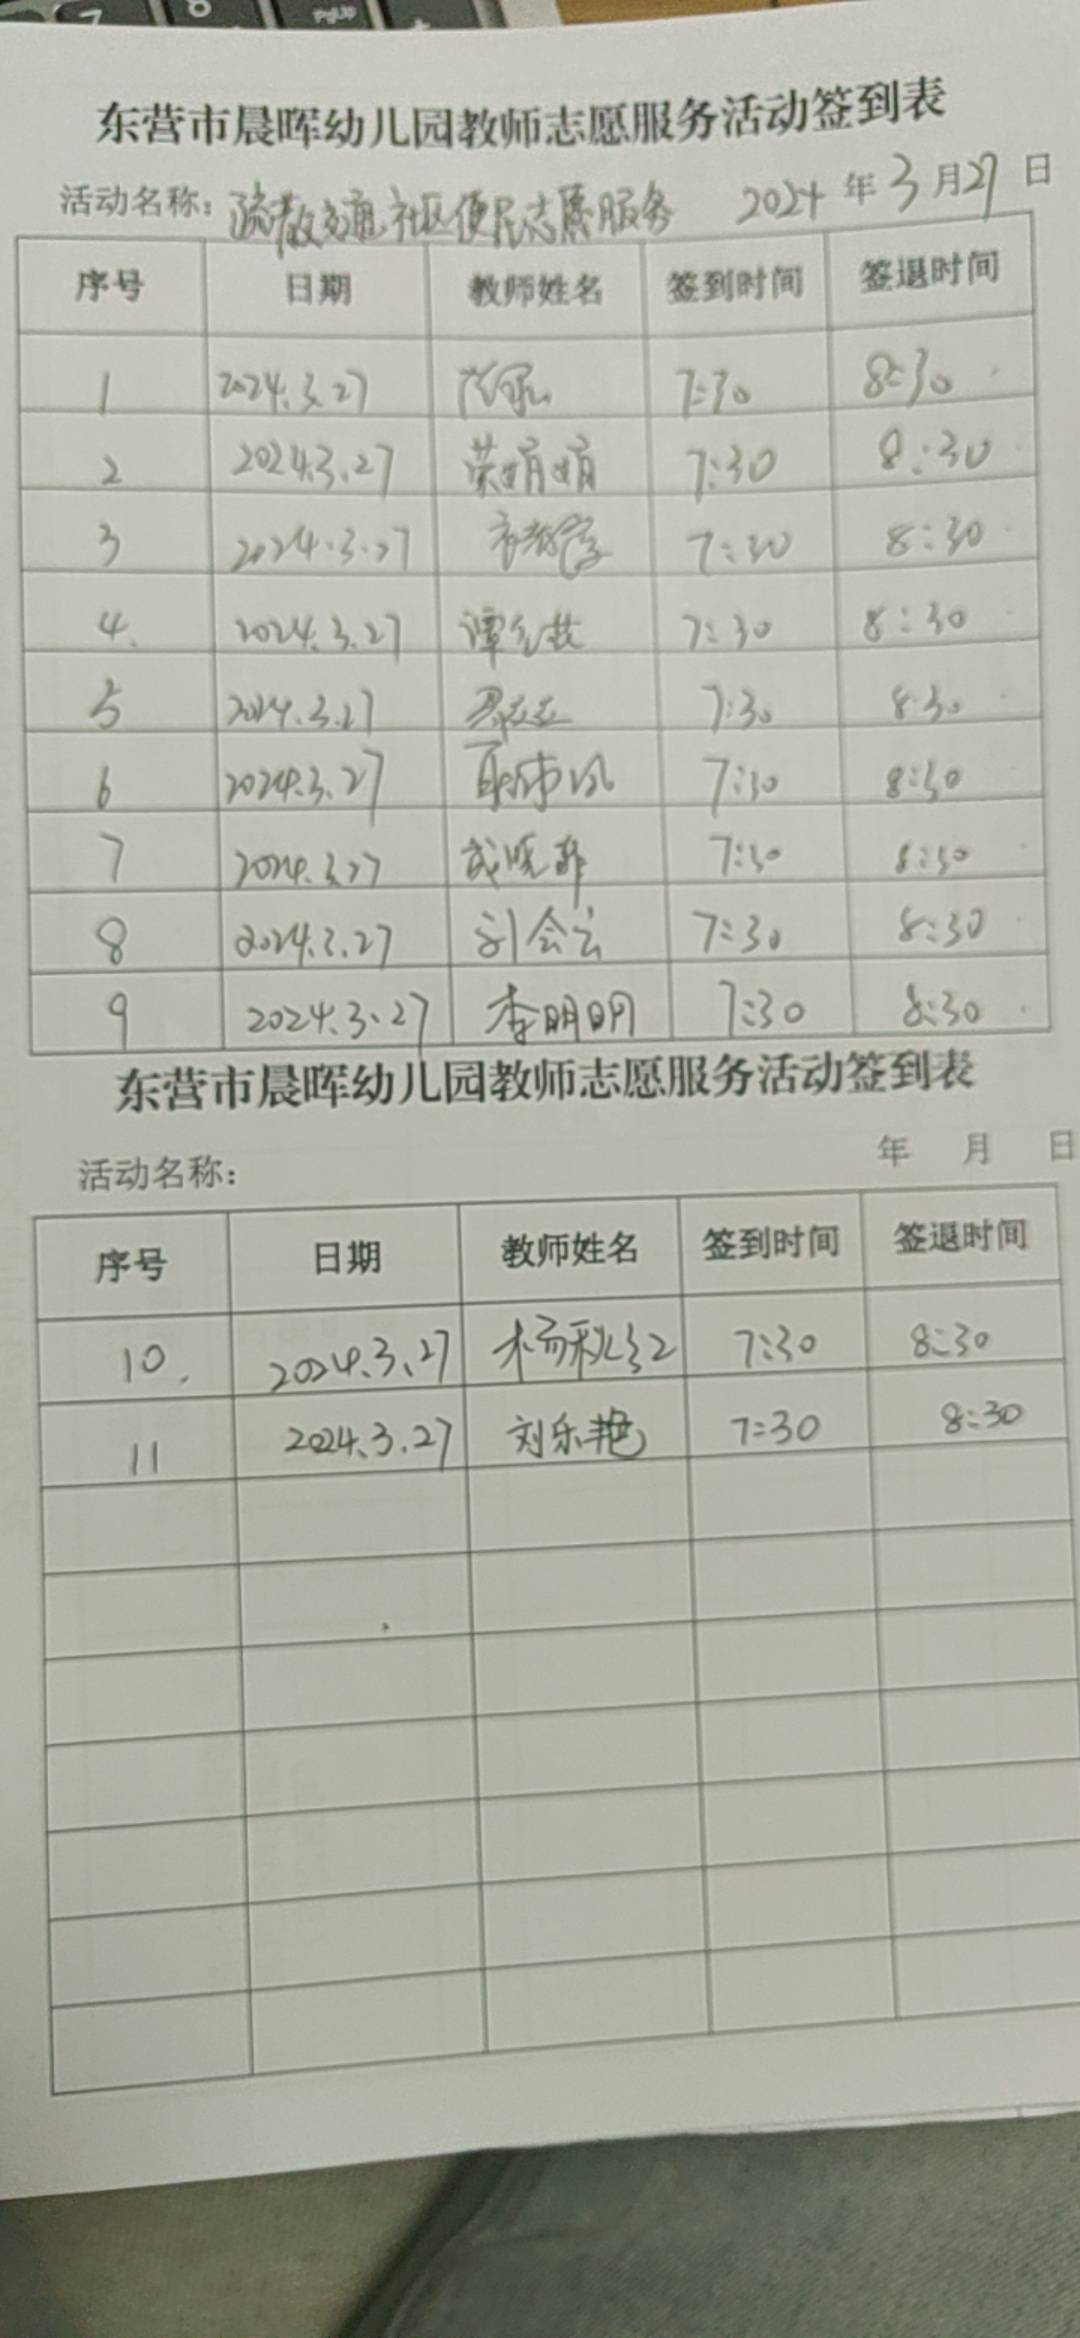 东营市晨晖幼儿园教师志愿服务活动签到表
活动名称：疏散交通社区便民志愿服务 2024年3月27日
序号 日期 教师姓名 签到时间 签退时间
1 2024.3.27 7:30 8:30
2 2024.3.27 荣娟娟 7:30 8:30
3 2024.3.27 7:30 8:30
4. 2024.3.27 7:30 8:30
5 2024.3.27 7:30 8:30
6 2024.3.27 7:30 8:30
7 2024.3.27 7:30 8:30
8 2024.3.27 刘会云 7:30 8:30
9 2024.3.27 李明明 7:30 8:30
东营市晨晖幼儿园教师志愿服务活动签到表
活动名称： 年 月 日
序号 日期 教师姓名 签到时间 签退时间
10. 2024.3.27 杨秋红 7:30 8:30
11 2024.3.27 刘乐艳 7:30 8:30